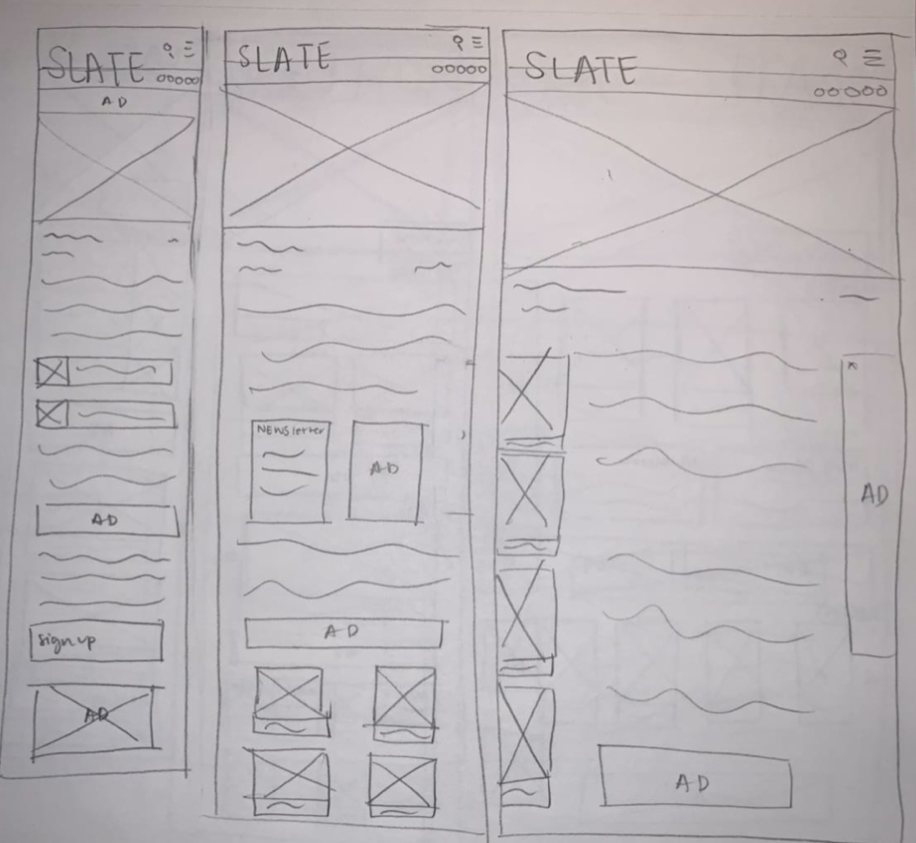 SLATE
AD
AD
Sign up
AD
SLATE
NEWSletter
AD
AD
SLATE
AD
AD